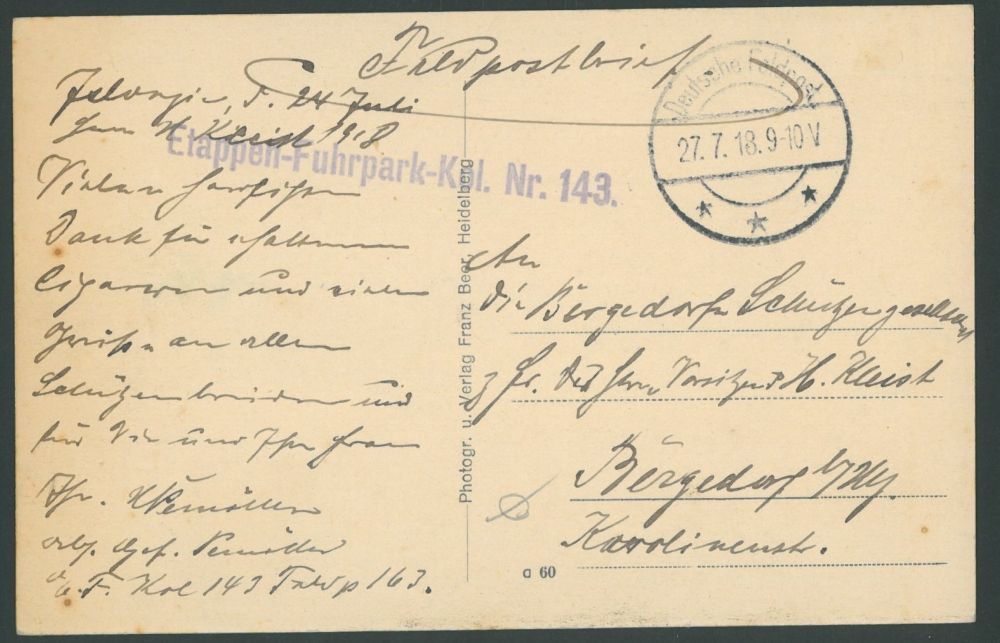 Feldpostbrief
d. 24 Juli
Herrn H. Kleist 1918
Etappen-Fuhrpark-Kol. Nr. 143.
Deutsche Feldpost
27. 7. 18. 9-10 V
Vielen herzlichen
Dank für erhaltenen
Cigarren und vielen
Grüße an allen
Schützenbrüdern und
für Sie und Ihre Frau
Ihr.
Gef.
E. F. Kol 143 Feldp 163.
Photogr. u. Verlag Franz Beer, Heidelberg
An
die Bergedorfer Schützengesellschaft
z. H. des Herrn Vorsitzend H. Kleist
Bergedorf b/Hbg.
Karolinenstr.
a 60